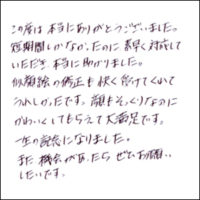 この度は本当にありがとうございました。
短期間しかなかったのに素早く対応して
いただき本当に助かりました。
似顔絵の修正も快く受けてくれて
うれしかったです。顔もそっくりなのに
かわいくしてもらえて大満足です。
一生の記念になりました。
また機会があったらぜひお願い
したいです。